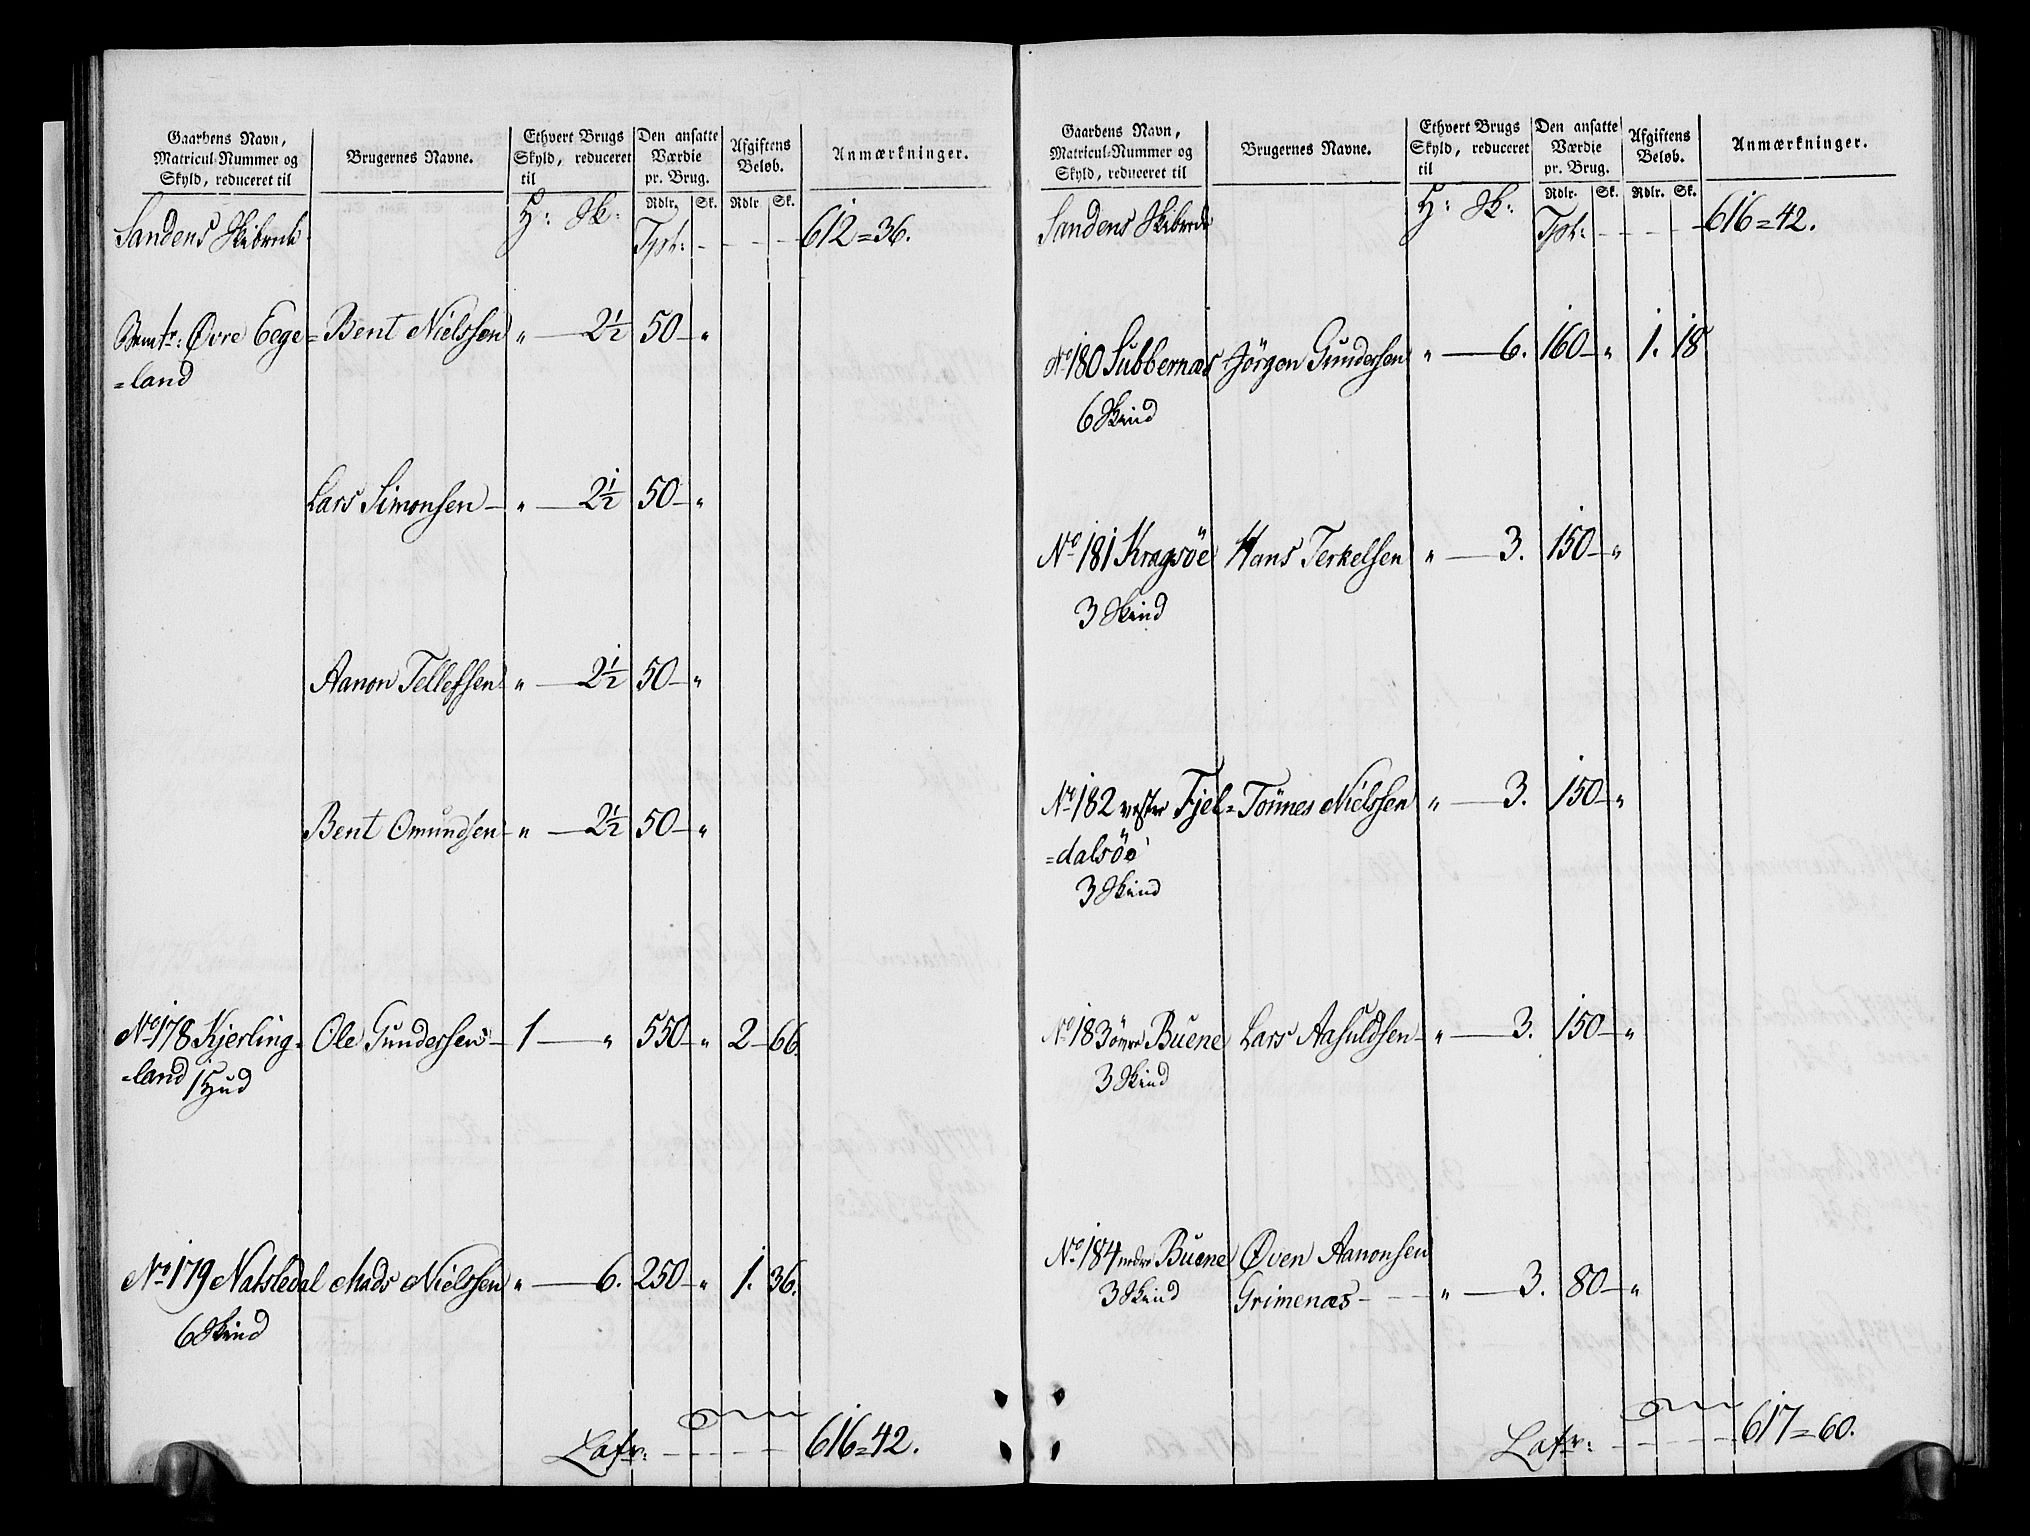 Gaardens Navn, Matricul-Nummer og Skyld, reduceret til | Brugernes Navne. | Ethvert Brugs Skyld, reduceret til | Den ansatte Værdie pr. Brug. | Afgiftens Beløb. | Anmærkninger.
H: Sk: | Rdlr. Sk. | Rdlr Sk.
Sandens Skibrede Tpt: - - - - 612=36.
Øvre Eege= Bent Nielssen " — 2½ 50 — "
=land
Lars Simonsen — " — 2½ 50 — "
Aanon Tellefsen " — 2½ 50 — "
Bent Omundsen " — 2½ 50 — "
No 178 Kjerling= Ole Gundersen — 1 — " 550 — " 2 — 66.
=land 1 Hud
No 179 Natsledal Mads Nielssen " — 6. 250 — " 1. 36.
6 Skind
Lafr: - - - - 616=42.
Gaardens Navn, Matricul-Nummer og Skyld, reduceret til | Brugernes Navne. | Ethvert Brugs Skyld, reduceret til | Den ansatte Værdie pr. Brug. | Afgiftens Beløb. | Anmærkninger.
H: Sk: | Rdlr. Sk. | Rdlr. Sk.
Sandens Skibrede Tpt: - - - - 616=42.
No 180 Subbernæs Jörgen Gundersen " — 6. 160 — " 1. 18
6 Skind
No 181 Kragsöe Hans Terkelsen " — 3. 150 — "
3 Skind
No 182 vestre Fjel= Tönnes Nielssen " — 3. 150 — "
=dalsöe
3 Skind
No 183 övre Buene Lars Aasuldsen — " — 3. 150 — "
3 Skind
No 184 nedre Buene Øven Aanonsen
3 Skind Grimenæs - - " — 3. 80 — "
Lafr: - - - - 617=60.